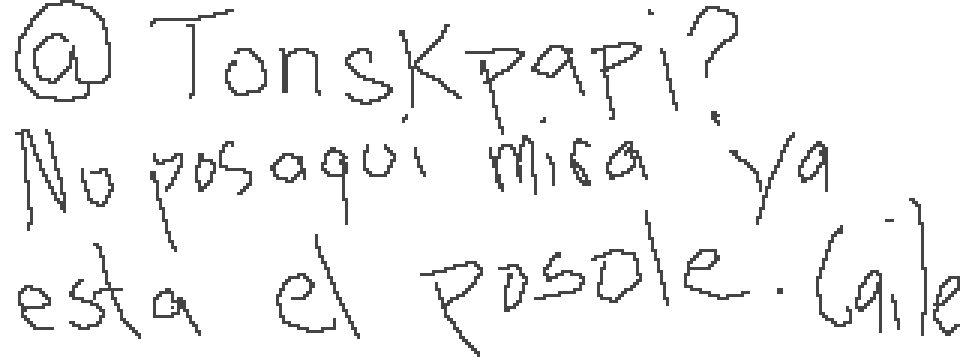 @ Tonskpapi?
No pos aqui mira ya
esta el posole. Caile